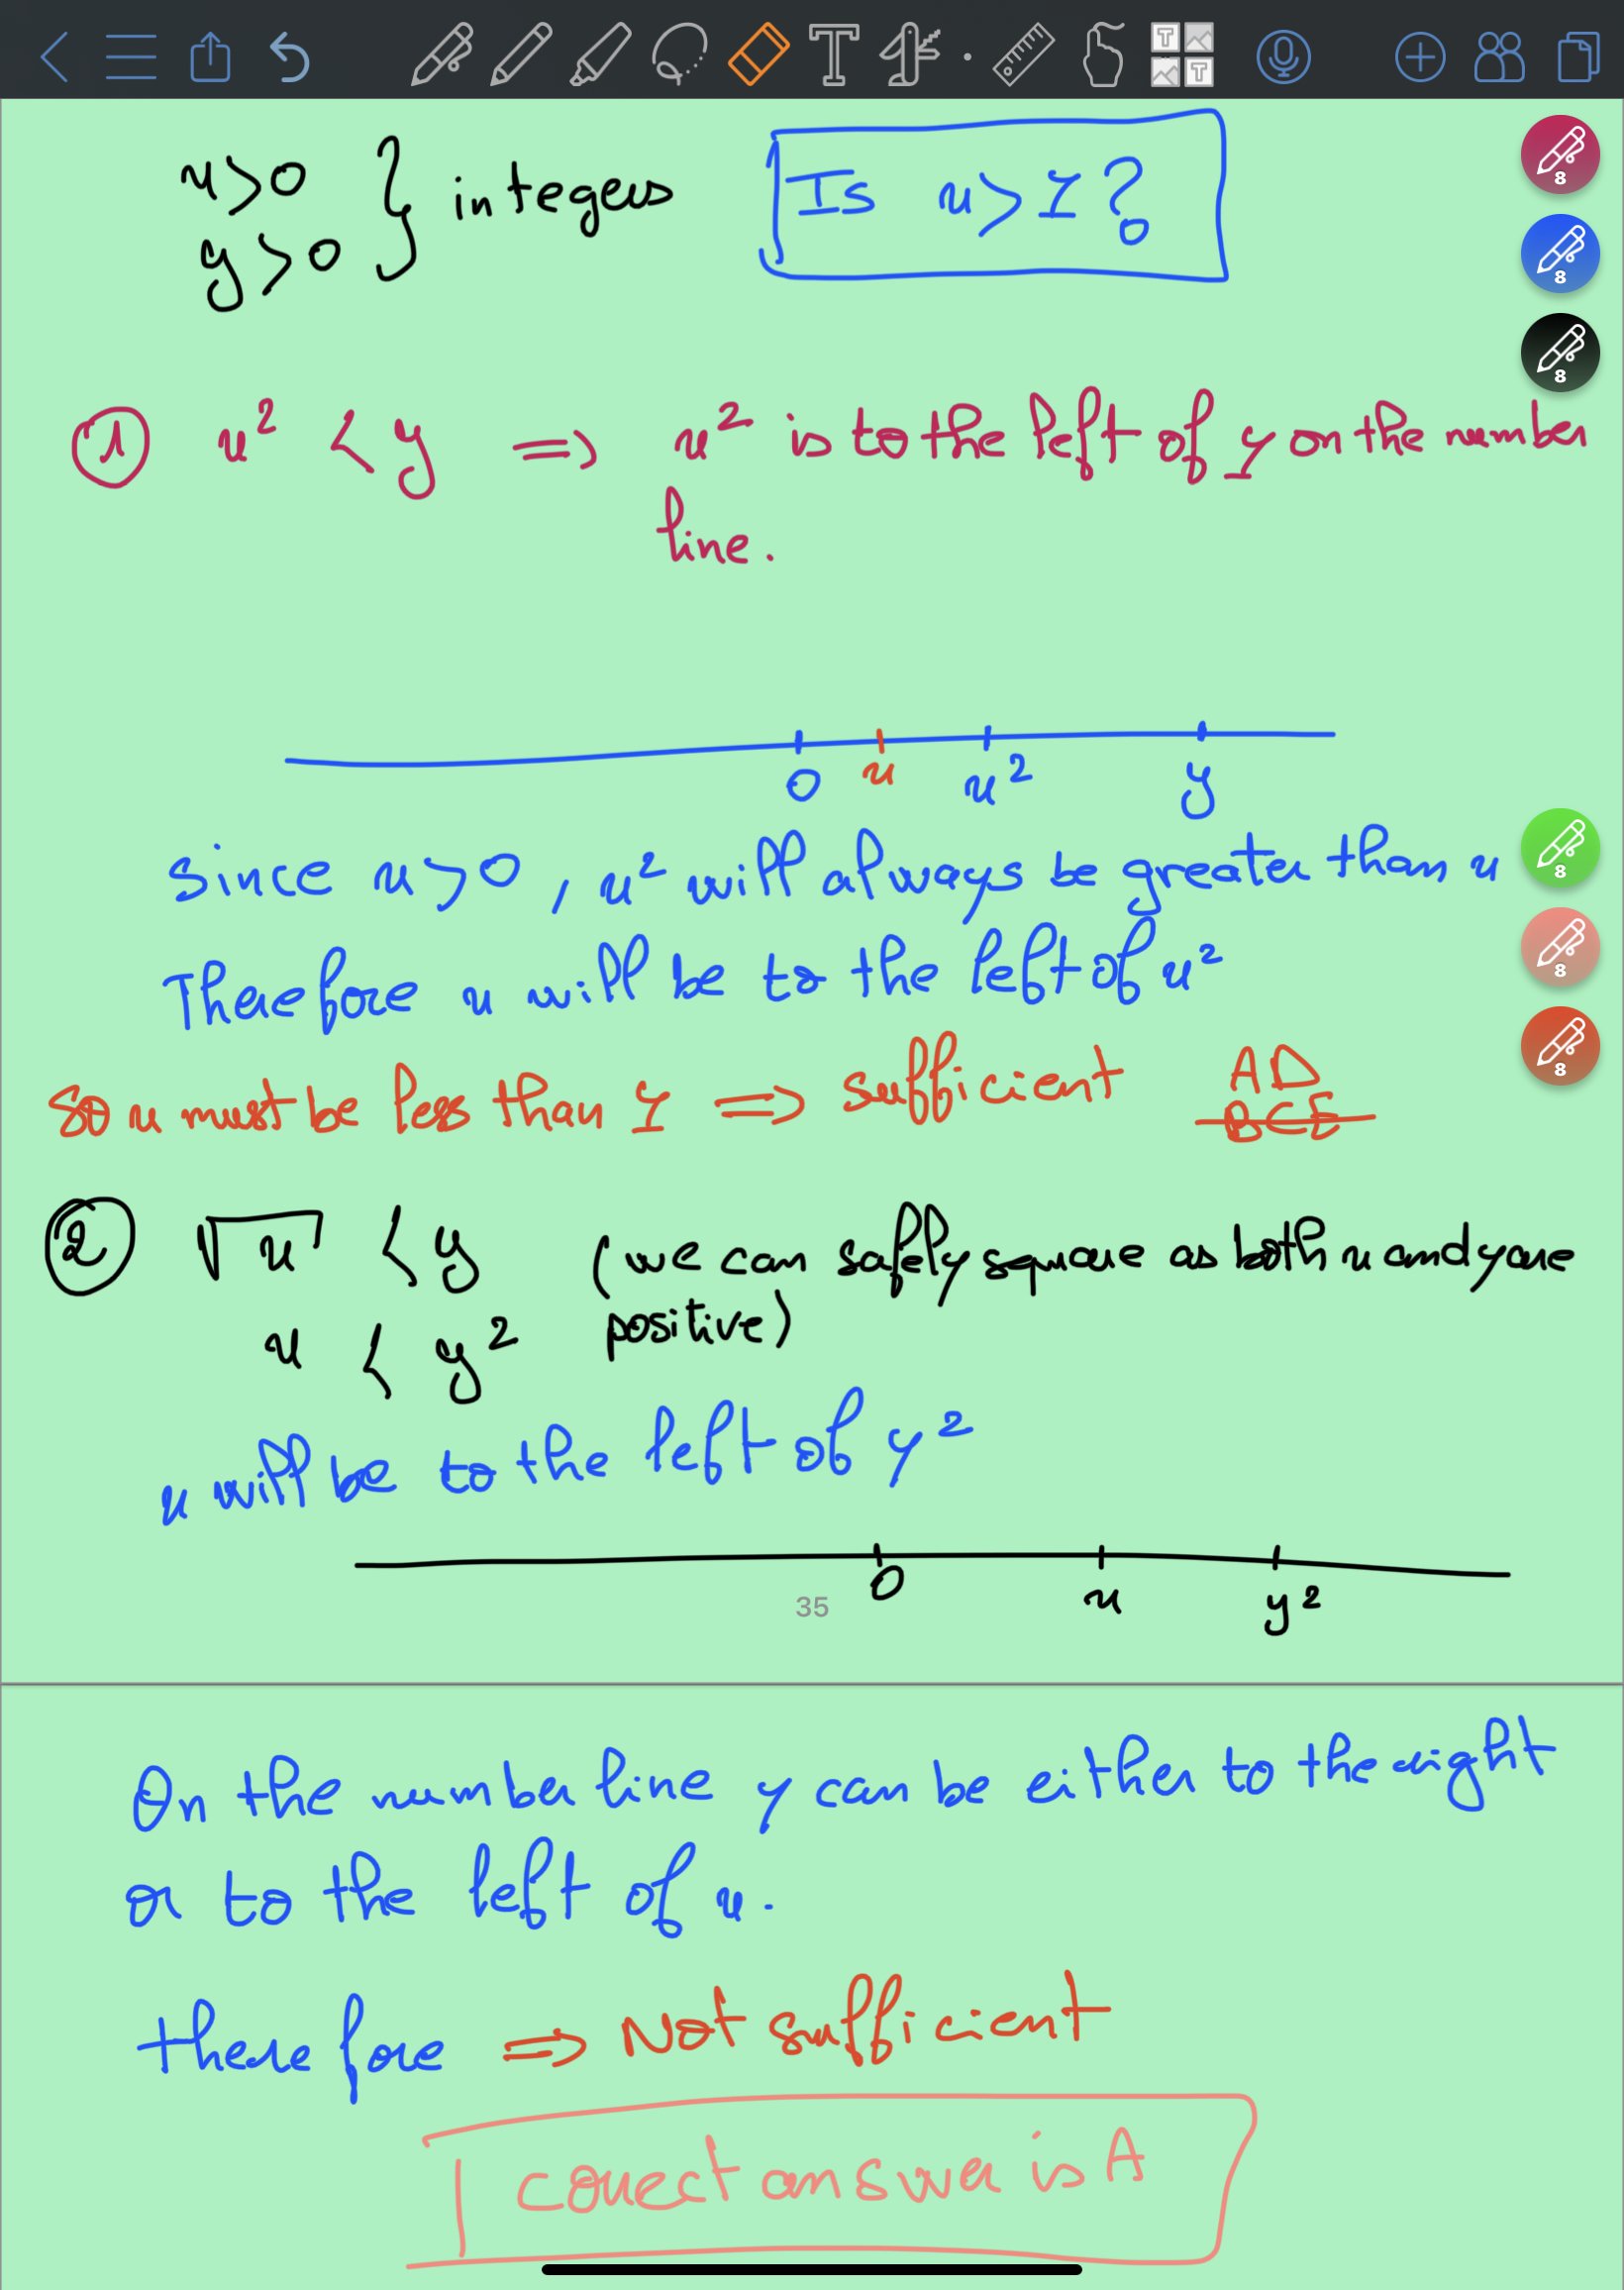 x>0
y>0 } integers
Is x>y?
① x² < y ⇒ x² is to the left of y on the number
line.
0 x x² y
Since x>0, x² will always be greater than x
Therefore x will be to the left of x²
So x must be less than y ⇒ sufficient
AD
BCE
② √x < y (we can safely square as both x and y are
positive)
x < y²
x will be to the left of y²
0 x y²
35
On the number line y can be either to the right
or to the left of x.
therefore ⇒ Not sufficient
correct answer is A